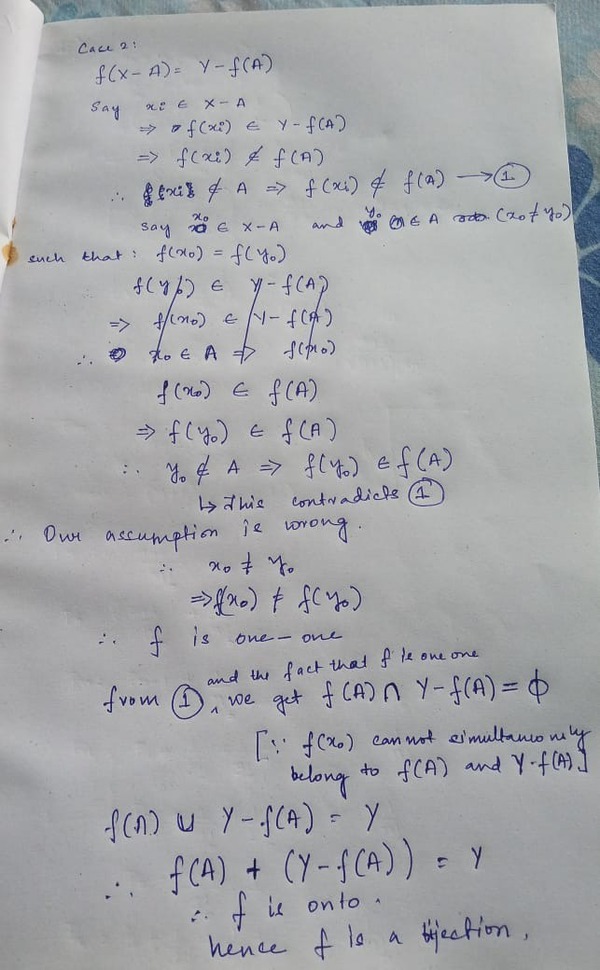 Case 2:
f(X-A) = Y-f(A)
Say xi ∈ X-A
⇒ f(xi) ∈ Y-f(A)
⇒ f(xi) ∉ f(A)
∴ xi ∉ A ⇒ f(xi) ∉ f(A) → ①
say x₀ ∈ X-A and y₀ ∈ A (x₀ ≠ y₀)
such that: f(x₀) = f(y₀)
f(y₀) ∈ Y-f(A)
⇒ f(x₀) ∈ Y-f(A)
∴ x₀ ∈ A ⇒ f(x₀)
f(x₀) ∈ f(A)
⇒ f(y₀) ∈ f(A)
∴ y₀ ∉ A ⇒ f(y₀) ∈ f(A)
↳ This contradicts ①
∴ Our assumption is wrong.
∴ x₀ ≠ y₀
⇒ f(x₀) ≠ f(y₀)
∴ f is one-one
from ①, and the fact that f is one one we get f(A) ∩ Y-f(A) = ϕ
[∵ f(x₀) cannot simultaneously
belong to f(A) and Y-f(A)]
f(A) ∪ Y-f(A) = Y
∴ f(A) + (Y-f(A)) = Y
∴ f is onto.
hence f is a bijection.